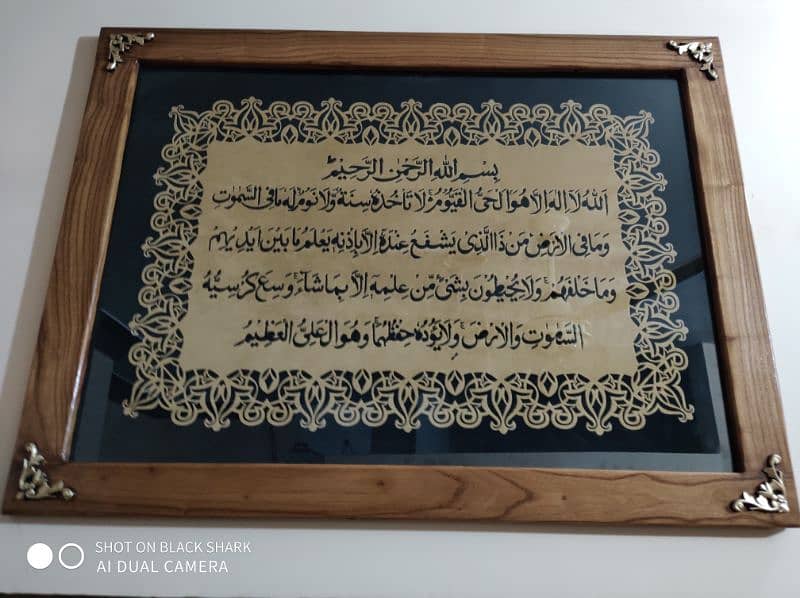 بِسْمِ اللهِ الرَّحْمٰنِ الرَّحِيْمِ
اَللهُ لَا اِلٰهَ اِلَّا هُوَ الْحَيُّ الْقَيُّوْمُ لَا تَاْخُذُهٗ سِنَةٌ وَّلَا نَوْمٌ لَهٗ مَا فِى السَّمٰوٰتِ
وَمَا فِى الْاَرْضِ مَنْ ذَا الَّذِىْ يَشْفَعُ عِنْدَهٗ اِلَّا بِاِذْنِهٖ يَعْلَمُ مَا بَيْنَ اَيْدِيْهِمْ
وَمَا خَلْفَهُمْ وَلَا يُحِيْطُوْنَ بِشَىْءٍ مِّنْ عِلْمِهٖ اِلَّا بِمَا شَآءَ وَسِعَ كُرْسِيُّهُ
السَّمٰوٰتِ وَالْاَرْضَ وَلَا يَؤُدُهٗ حِفْظُهُمَا وَهُوَ الْعَلِىُّ الْعَظِيْمُ
SHOT ON BLACK SHARK
AI DUAL CAMERA